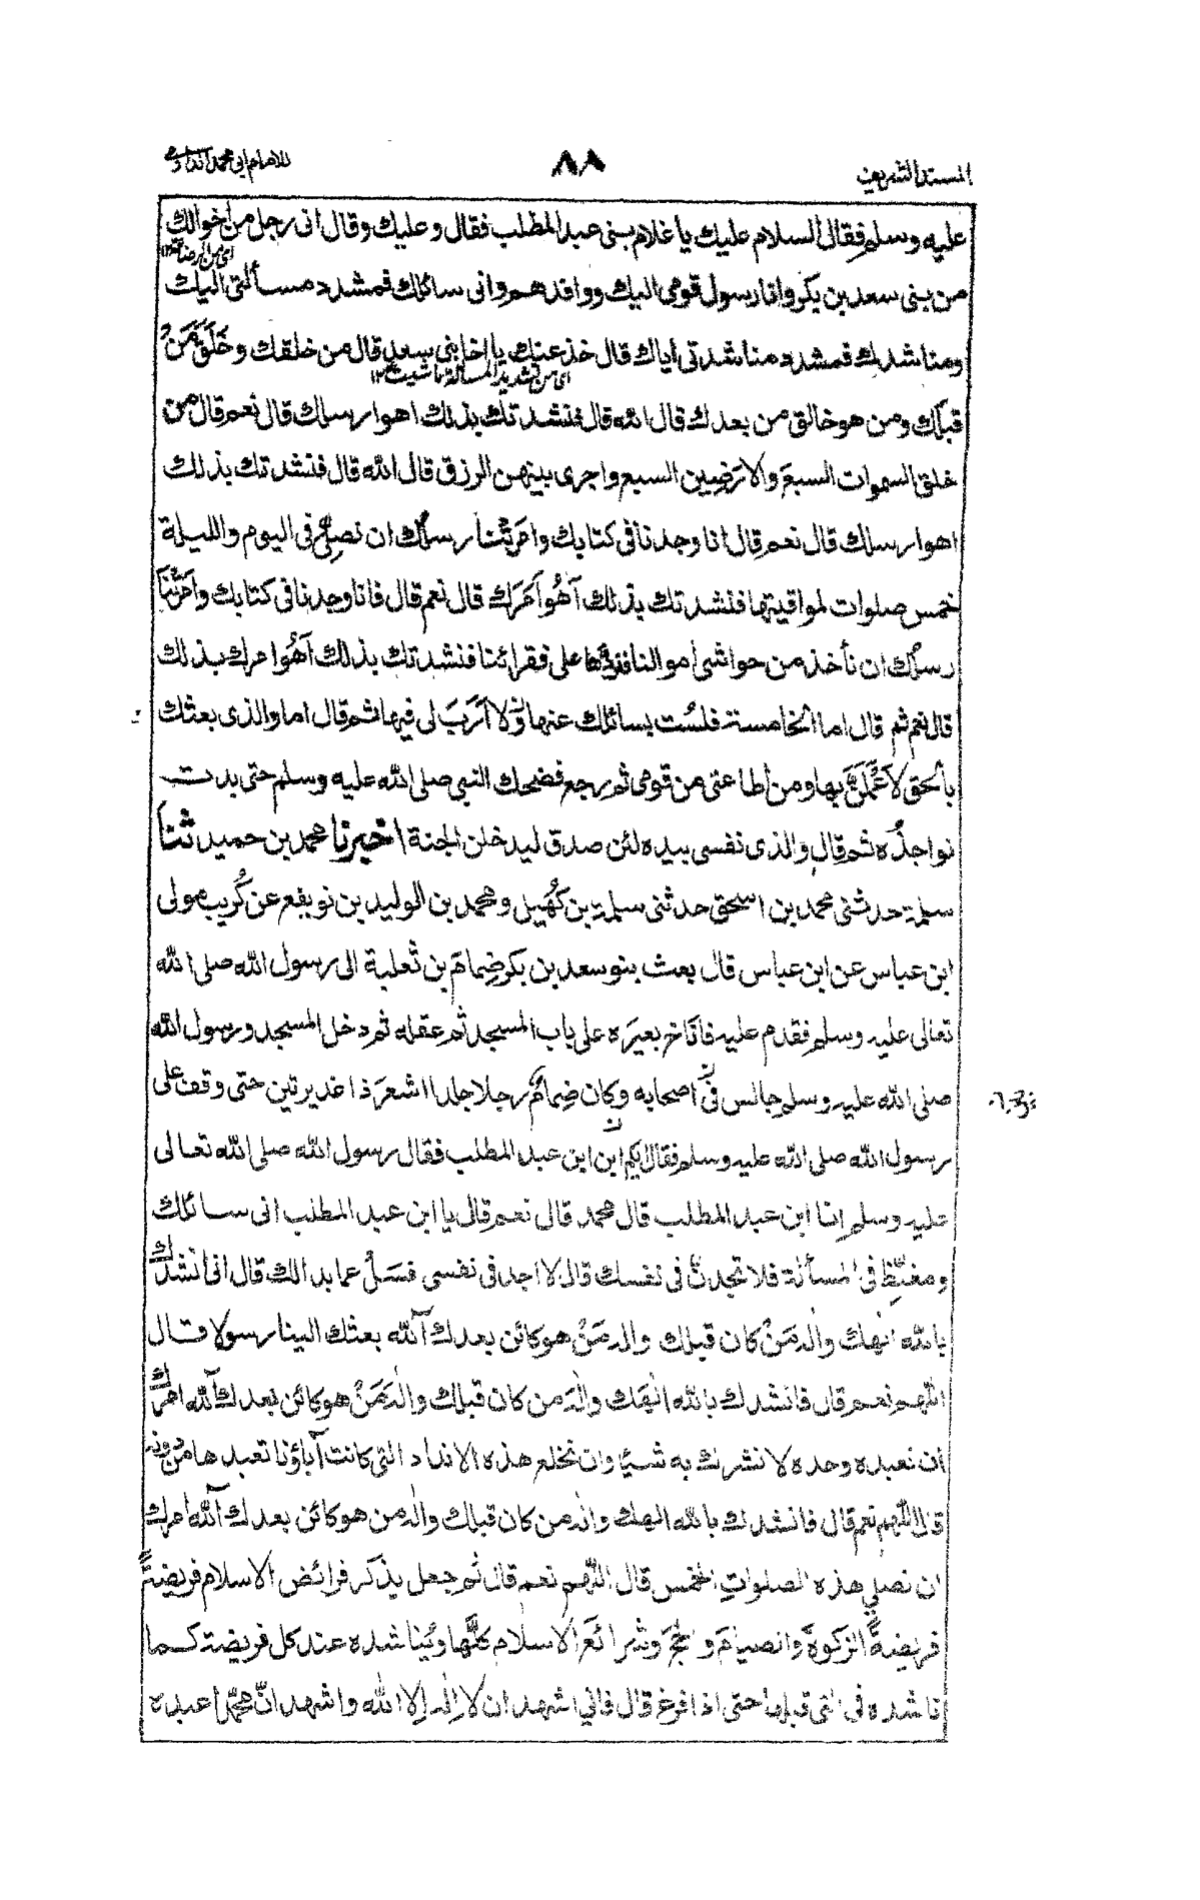 المسند الشريف
٨٨
للامام ابي محمد الدارمي
عليه وسلم فقال السلام عليك يا غلام بني عبد المطلب فقال وعليك وقال اني رجل من اخوالك
من بني سعد بن بكر وانا رسول قومي اليك ووافدهم واني سائلك فمشدد مسألتي اليك
ومناشدك فمشدد مناشدتي اياك قال خذ عنك يا اخا بني سعد قال من خلقك وخَلَقَ مَنْ
قبلك ومن هو خالق من بعدك قال الله قال فنشدتك بذلك اهو ارسلك قال نعم قال من
خلق السموات السبع والارضين السبع واجرى بينهن الرزق قال الله قال فنشدتك بذلك
اهو ارسلك قال نعم قال انا وجدنا في كتابك وامرتنا رسلك ان نصلي في اليوم والليلة
خمس صلوات لمواقيتها فنشدتك بذلك أهُو أمَرَك قال نعم قال فانا وجدنا في كتابك وامرتنا
رسلك ان نأخذ من حواشي اموالنا فنردها على فقرائنا فنشدتك بذلك أهُو امرك بذلك
قال نعم ثم قال اما الخامسة فلستُ بسائلك عنها ولا أرَبَ لي فيها ثم قال اما والذي بعثك
بالحق لأعملَنَّ بها ومن اطاعني من قومي ثم رجع فضحك النبي صلى الله عليه وسلم حتى بدت
نواجذُه ثم قال والذي نفسي بيده لئن صدق ليدخلن الجنة اخبرنا محمد بن حميد ثنا
سلمة حدثني محمد بن اسحق حدثني سلمة بن كُهَيل ومحمد بن الوليد بن نويفع عن كُريب مولى
ابن عباس عن ابن عباس قال بعث بنو سعد بن بكر ضِمامَ بن ثعلبة الى رسول الله صلى الله
تعالى عليه وسلم فقدم عليه فاناخ بعيرَه على باب المسجد ثم عقله ثم دخل المسجد ورسول الله
صلى الله عليه وسلم جالس في اصحابه وكان ضِمامٌ رجلا جلدا اشعرَ ذا غديرتين حتى وقف على
رسول الله صلى الله عليه وسلم فقال ايكم ابن عبد المطلب فقال رسول الله صلى الله تعالى
عليه وسلم انا ابن عبد المطلب قال محمد قال نعم قال يا ابن عبد المطلب اني سائلك
ومغلِّظ في المسألة فلا تجدنَّ في نفسك قال لا اجد في نفسي فسَلْ عما بدا لك قال اني انشدك
بالله الهك واله مَنْ كان قبلك واله مَنْ هو كائن بعدك آلله بعثك الينا رسولا قال
اللهم نعم قال فانشدك بالله الهك واله من كان قبلك واله مَنْ هو كائن بعدك آلله امرك
ان نعبده وحده لا نشرك به شيئا وان نخلع هذه الانداد التي كانت آباؤنا تعبدها من دونه
قال اللهم نعم قال فانشدك بالله الهك واله من كان قبلك واله من هو كائن بعدك آلله امرك
ان نصلي هذه الصلواتِ الخمس قال اللهم نعم قال ثم جعل يذكر فرائض الاسلام فريضةً
فريضةً الزكوةَ والصيامَ والحجَ وشرائعَ الاسلام كلَّها ويُناشده عند كل فريضة كما
ناشده في التي قبلها حتى اذا فرغ قال فاني اشهد ان لا اله الا الله واشهد انّ محمدا عبده